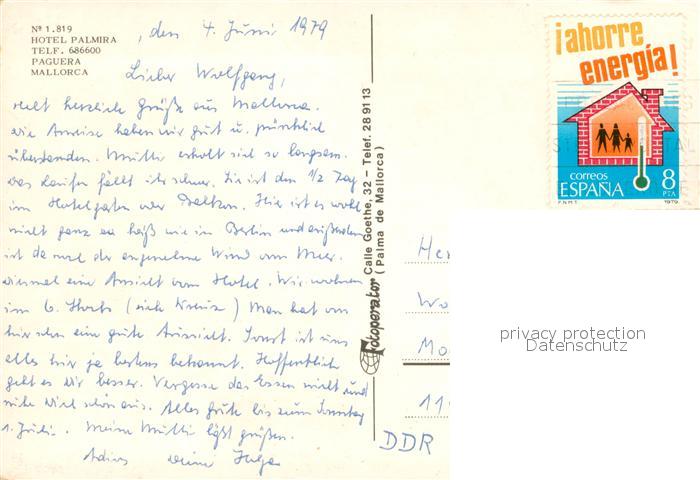 Nº 1.819
HOTEL PALMIRA
TELF. 686600
PAGUERA
MALLORCA
, den 4. Juni 1979
Lieber Wolfgang,
recht herzliche Grüße aus Mallorca.
Die Anreise haben wir gut u. pünktlich
überstanden. Mutti erholt sich so langsam.
Das Laufen fällt ihr schwer. Sie ist den 1/2 Tag
im Hotelgarten oder Balkon. Hier ist es wohl
nicht ganz so heiß wie in Berlin und außerdem
ist da noch der angenehme Wind vom Meer.
Diesmal eine Ansicht vom Hotel. Wir wohnen
im 6. Stock (siehe Kreuz) Man hat von
hier schon eine gute Aussicht. Sonst ist uns
alles hier ja bestens bekannt. Hoffentlich
geht es Dir besser. Vergesse das Essen nicht und
ruhe Dich schön aus. Alles Gute bis zum Sonntag
1. Juli. Meine Mutti läßt grüßen.
Adios deine
Fotoperator Calle Goethe, 32 — Telef. 28 91 13
(Palma de Mallorca)
¡ahorre
energía!
correos
ESPAÑA
8
PTA
F.N.M.T.
1979
He
Wo
Mo
11
DDR
privacy protection
Datenschutz